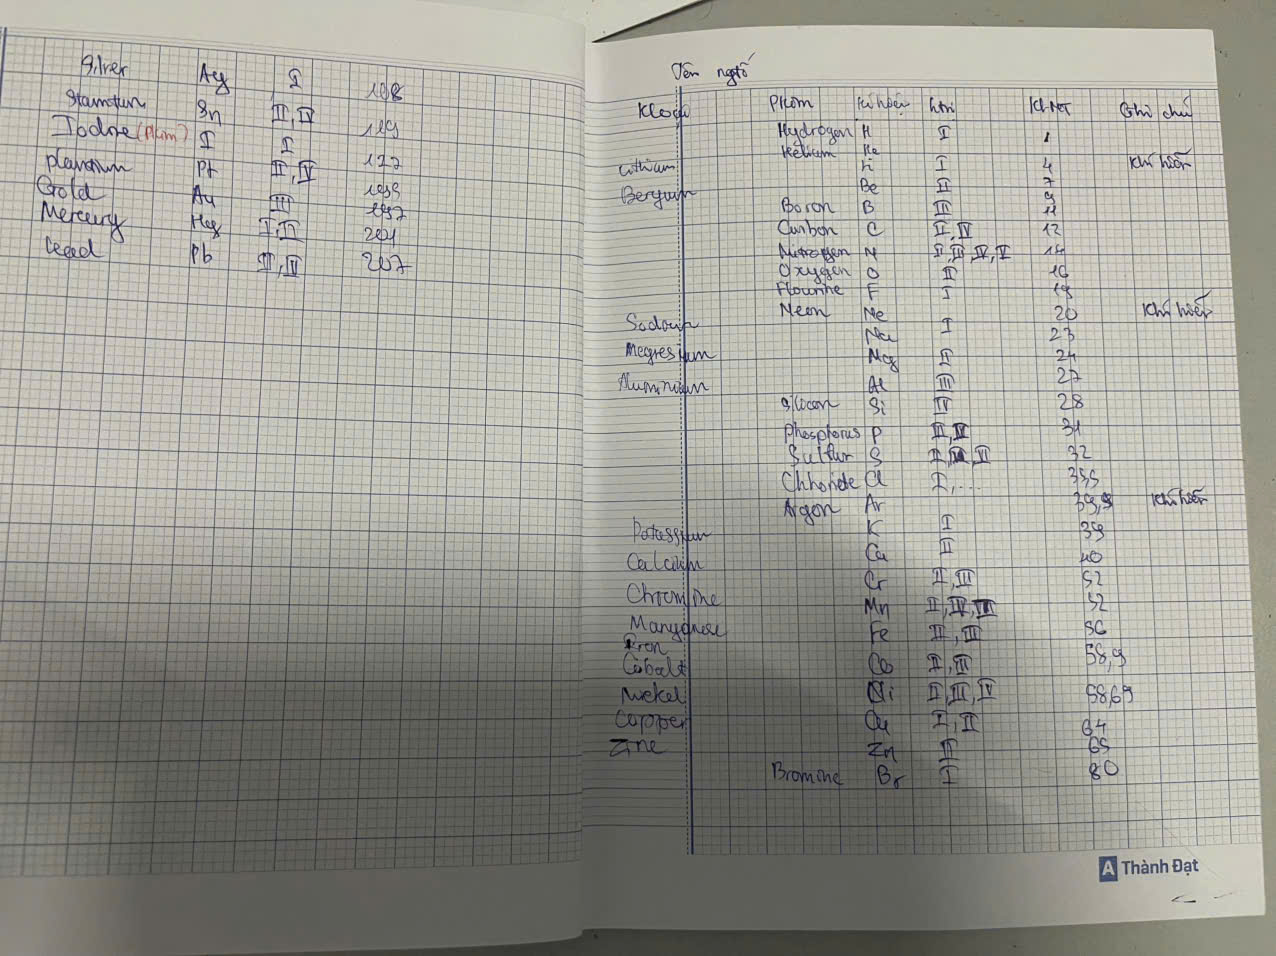 Silver Ag I 108
Stanntun Sn II, IV 119
Iodine (Pkim) I I 127
plantium Pt II, IV 195
Gold Au III 197
Mercury Hg I, II 201
Lead Pb II, IV 207
Tên ngtố
Kloại Pkim kí hiệu htrị KLNT Ghi chú
Hydrogen H I 1
Helium He 4 Khí hiếm
Lithium Li I 7
Beryium Be II 9
Boron B III 11
Carbon C II, IV 12
Nitrogen N II, III, IV, V 14
Oxygen O II 16
Flourine F I 19
Neon Ne 20 Khí hiếm
Sodoum Na I 23
Megresium Mg II 24
Aluminium Al III 27
Silocon Si IV 28
Phosphorus P III, V 31
Sulfur S II, IV, VI 32
Chloride Cl I,... 35,5
Argon Ar 39,9 Khí hiếm
Potassium K I 39
Calcium Ca II 40
Chromine Cr II, III 52
Manganese Mn II, IV, VII 52
Iron Fe II, III 56
Cobalt Co II, III 58,9
Nickel Ni II, III, IV 58,69
Copper Cu I, II 64
Zinc Zn II 65
Bromine Br I 80
A Thành Đạt